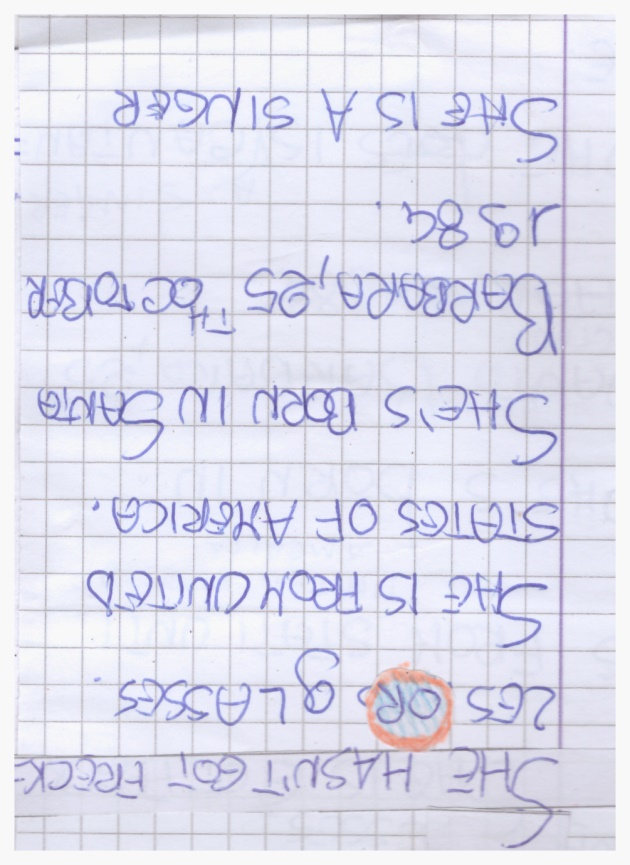 SHE HASN'T GOT FRECK-
LES OR gLASSES.
SHE IS FROM UNITED
STATES OF AMERICA.
SHE'S BORN IN SANTA
BARBARA, 25TH OCTOBER
1984.
SHE IS A SINGER